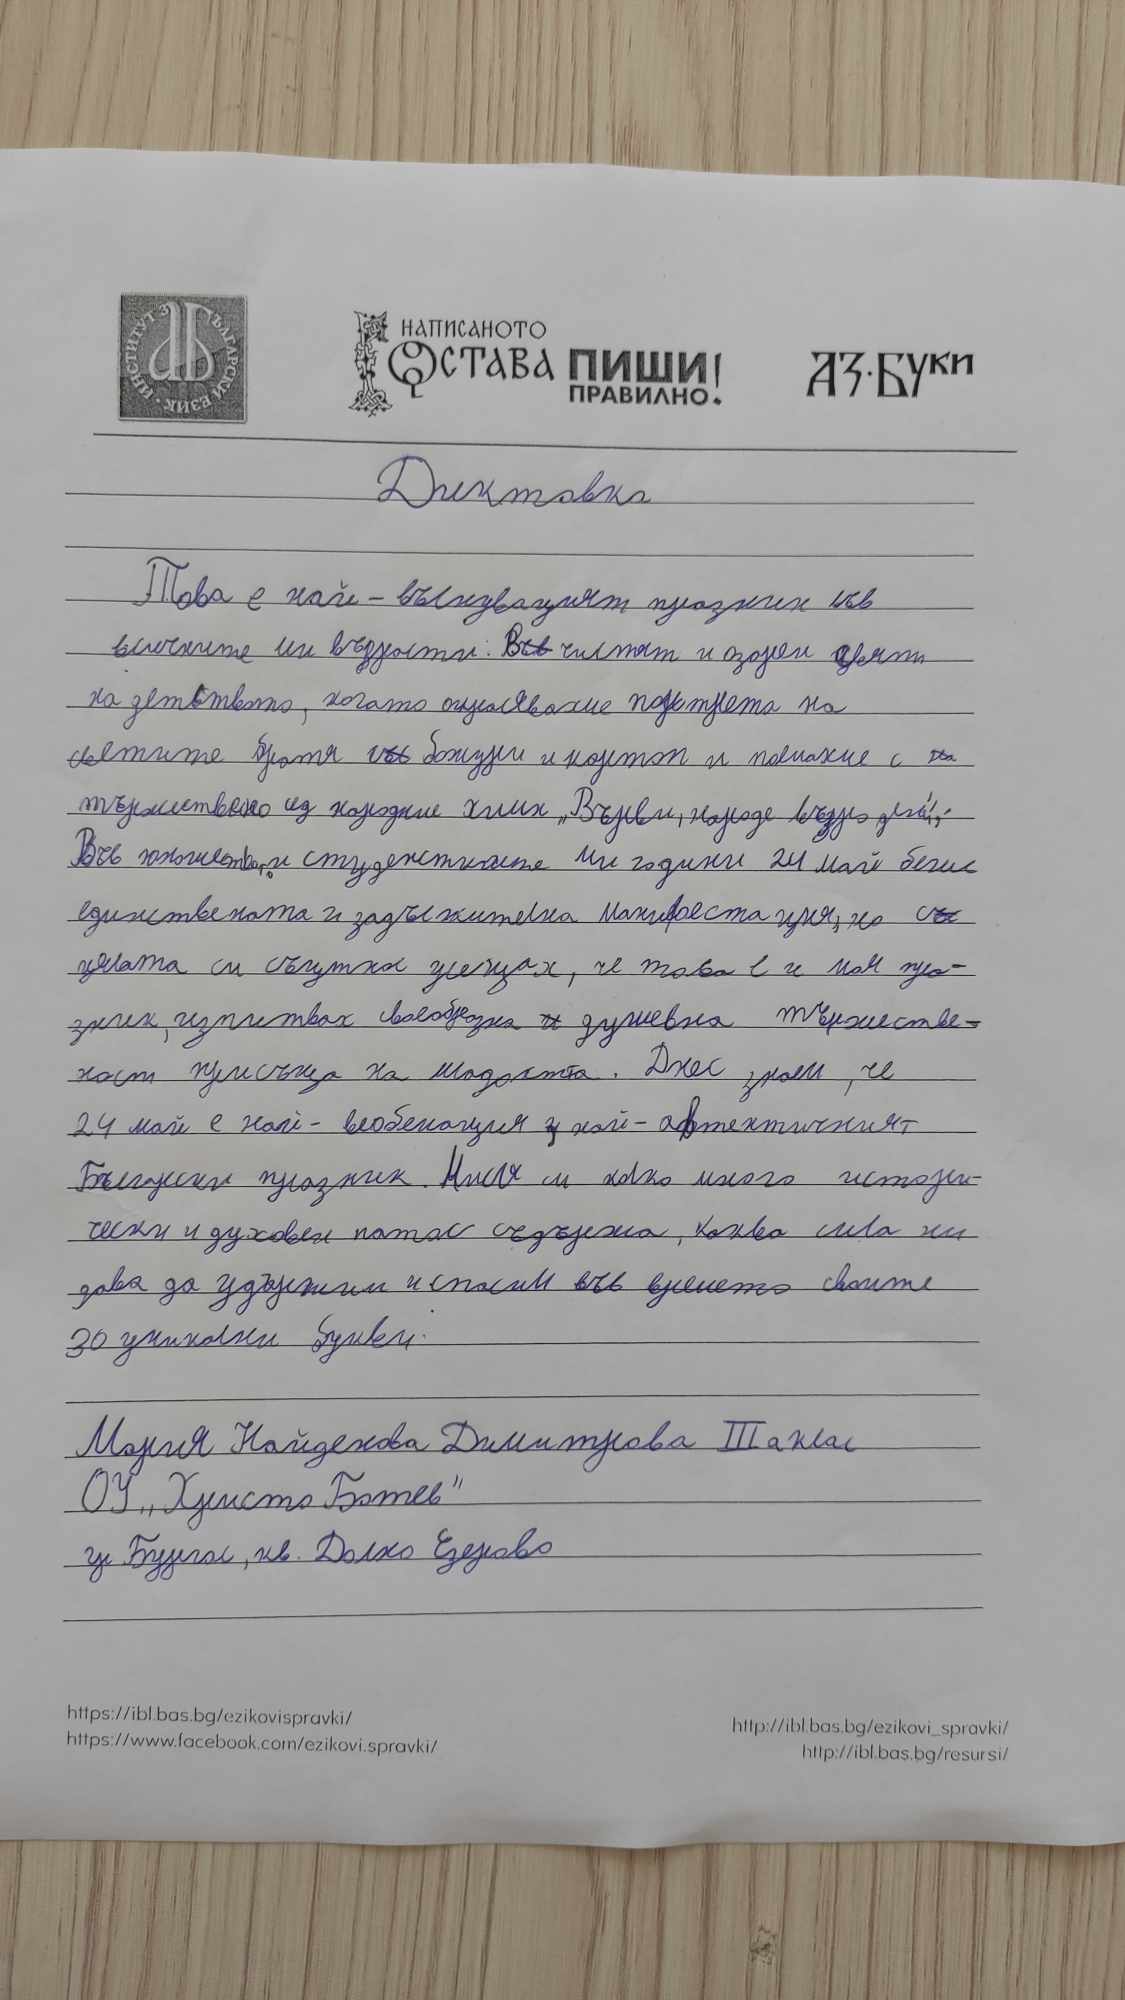 ИНСТИТУТ ЗА БЪЛГАРСКИ ЕЗИК
НАПИСАНОТО ОСТАВА ПИШИ ПРАВИЛНО!
АЗ·БУКИ
Диктовка
Това е най-вълнуващият празник във
всичките ми възрасти: Във чистят и озарен свят
на детството, когато окрасявахме портрета на
светите братя със божури и картон и поемахме с
тържествено из народние химн „Върви, народе възродени“.
Във юношество, и студентските ми години 24 май беше
единствената и задължителна манифестация, но със
цялата си същтност усещах, че това е и моя пра-
зник, изпитвах своеобразна душевна тържестве-
ност присъща на младостта. Днес знаем, че
24 май е най-всеобемащия и най-автентичният
Български празник. Мисля си колко много истори-
чески и духовен патос съдържа, каква сила ни
дава да удържим и спасим във времето своите
30 уникални букви.
Мария Найденова Димитрова III а клас
ОУ „Христо Ботев"
гр Бургас, кв. Долно Езерово
https://ibl.bas.bg/ezikovispravki/
https://www.facebook.com/ezikovi.spravki/
http://ibl.bas.bg/ezikovi_spravki/
http://ibl.bas.bg/resursi/